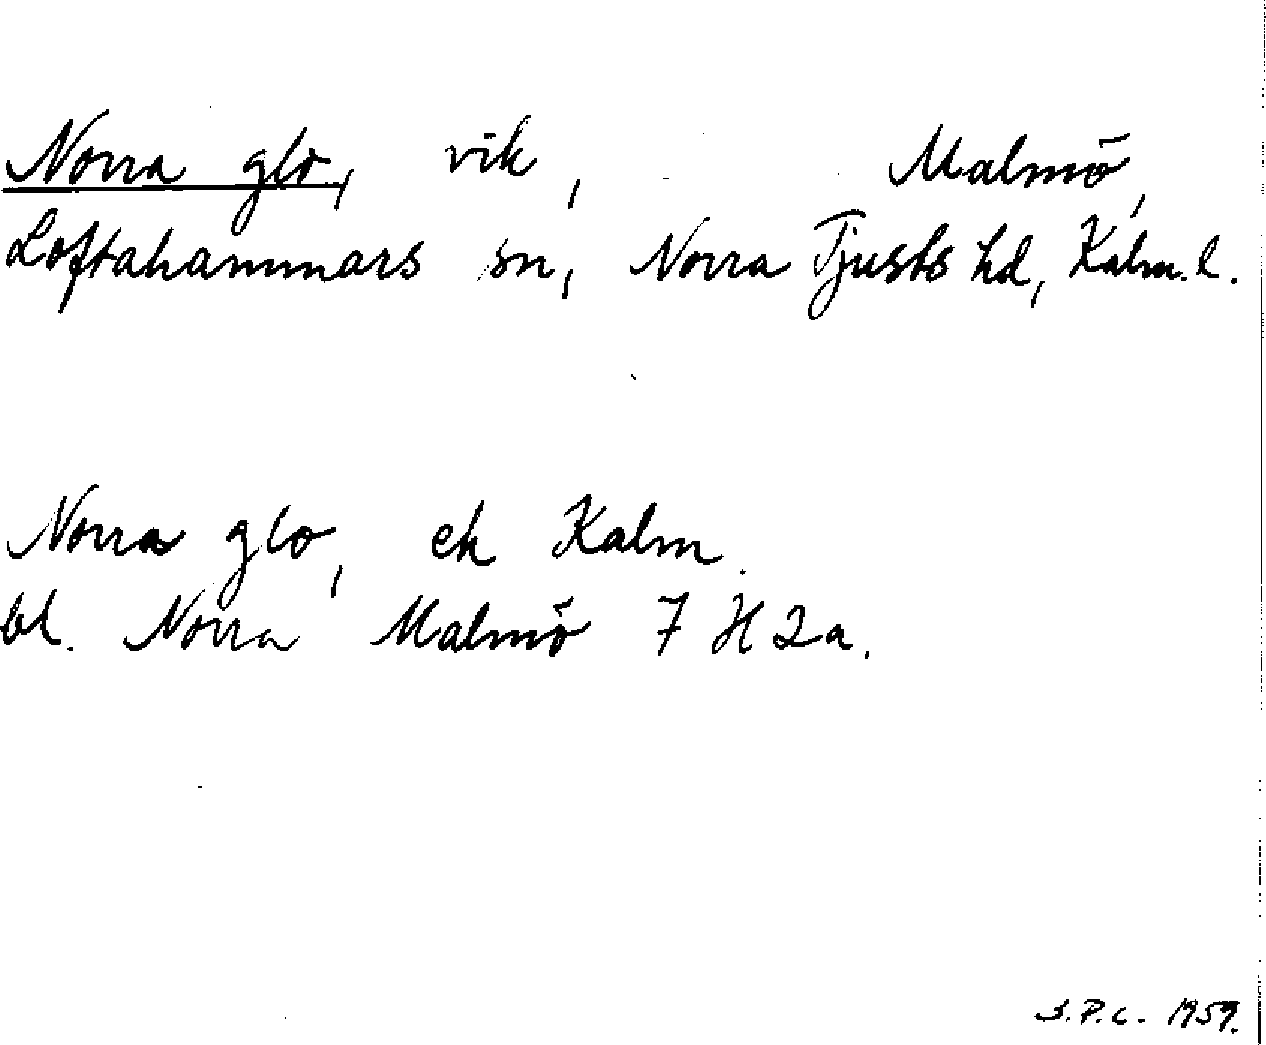 Norra glo, vik, Malmö,
Loftahammars sn, Norra Tjusts hd, Kalm. l.
Norra glo, ek Kalm.
bl. Norra Malmö 7 H 2a.
S.P.C. 1959.